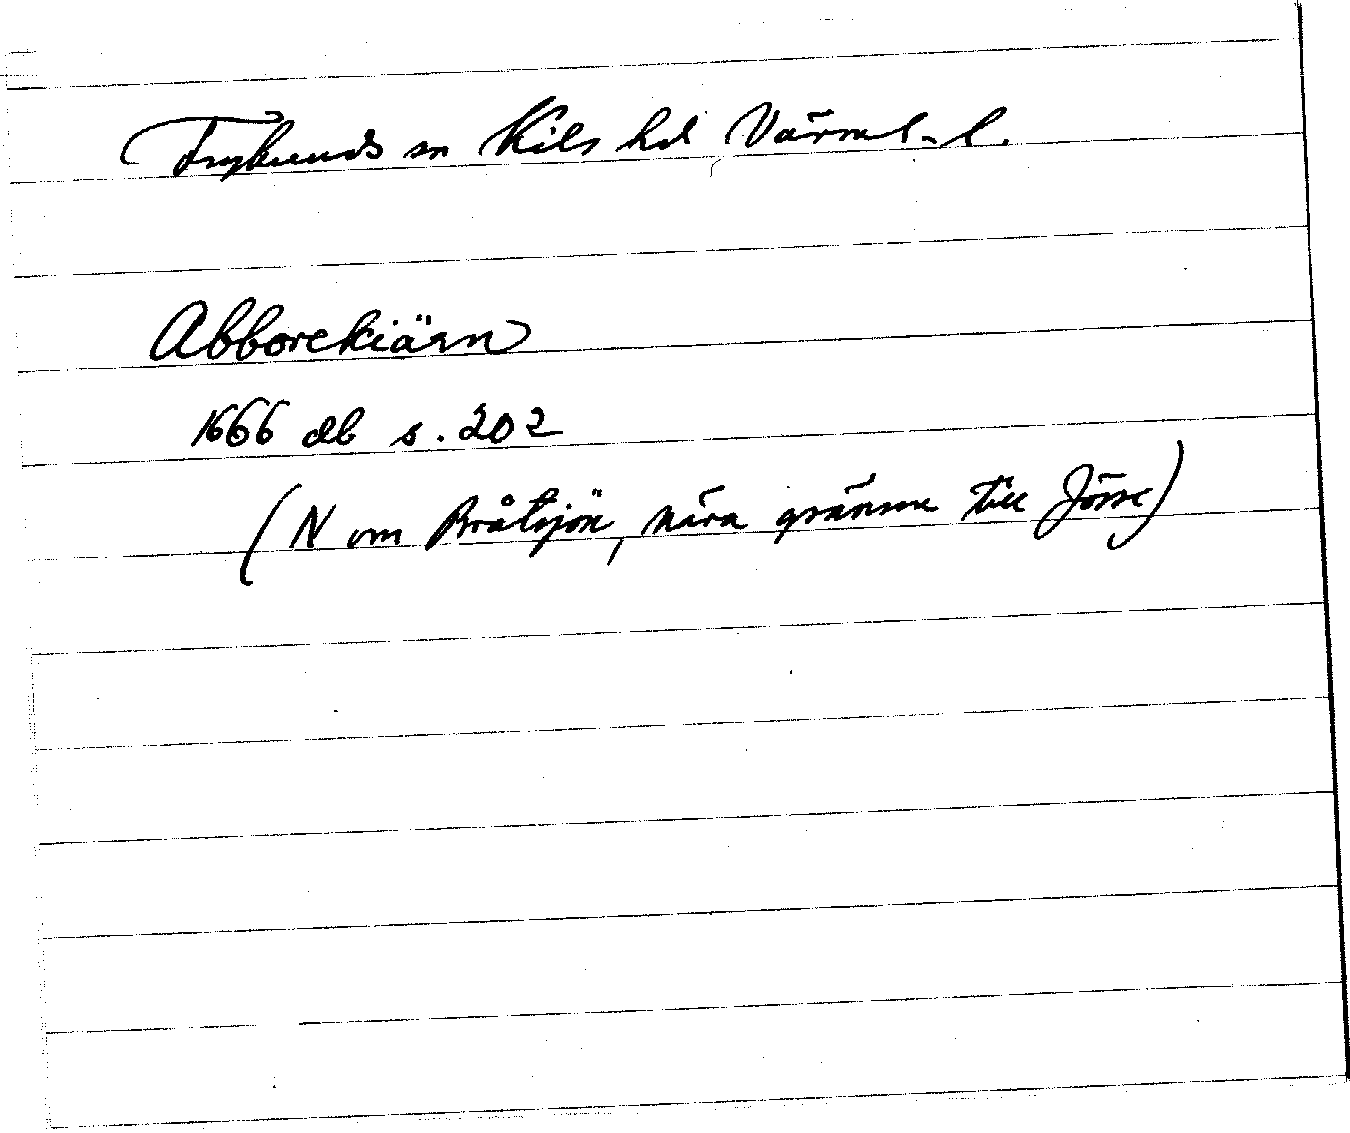 Frykerud sn Kils hd Värml. l.
Abborekiärn
1666 db s. 202
(N om Bråtsjön, nära gränsen till Jösse)